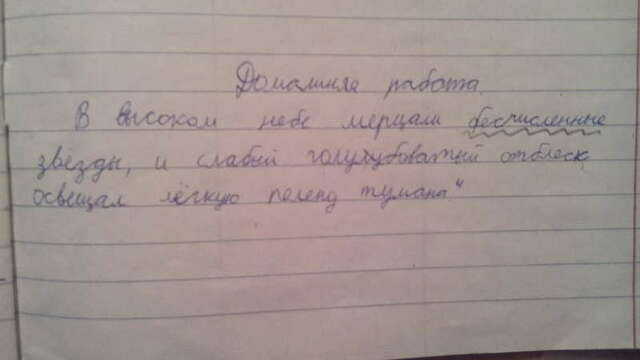 Домашняя работа.
В высоком небе мерцали бесчисленные
звёзды, и слабый голубоватый отблеск
освещал лёгкую пелену тумана"